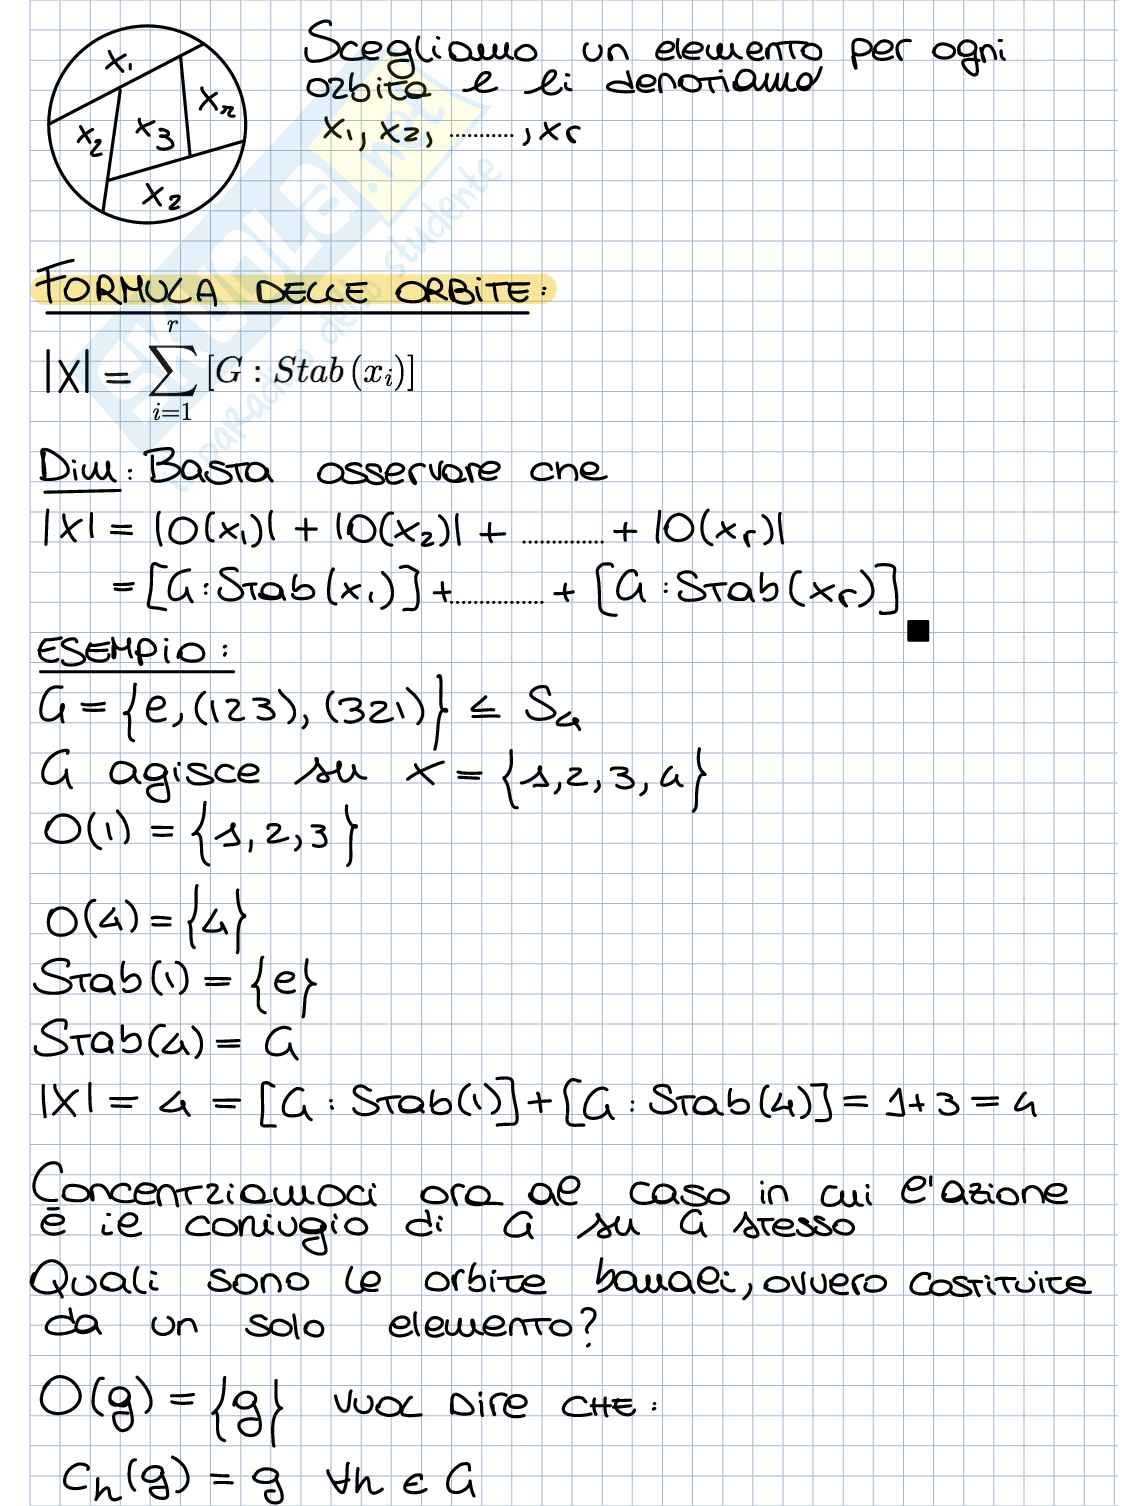 x₁
x₂
x₃
xᵣ
x₂
Scegliamo un elemento per ogni
orbita e li denotiamo
x₁, x₂, ..........., xᵣ
FORMULA DELLE ORBITE:
|X| = \sum_{i=1}^{r} [G : Stab(xᵢ)]
Dim: Basta osservare che
|X| = |O(x₁)| + |O(x₂)| + .............. + |O(xᵣ)|
= [G : Stab(x₁)] + ................ + [G : Stab(xᵣ)] ■
ESEMPIO:
G = {e, (123), (321)} ≤ S₄
G agisce su X = {1, 2, 3, 4}
O(1) = {1, 2, 3}
O(4) = {4}
Stab(1) = {e}
Stab(4) = G
|X| = 4 = [G : Stab(1)] + [G : Stab(4)] = 1 + 3 = 4
Concentriamoci ora al caso in cui l'azione
è il coniugio di G su G stesso
Quali sono le orbite banali, ovvero costituite
da un solo elemento?
O(g) = {g} VUOL DIRE CHE:
cₕ(g) = g ∀h ∈ G
SKUOLA.net
il paradiso dello studente